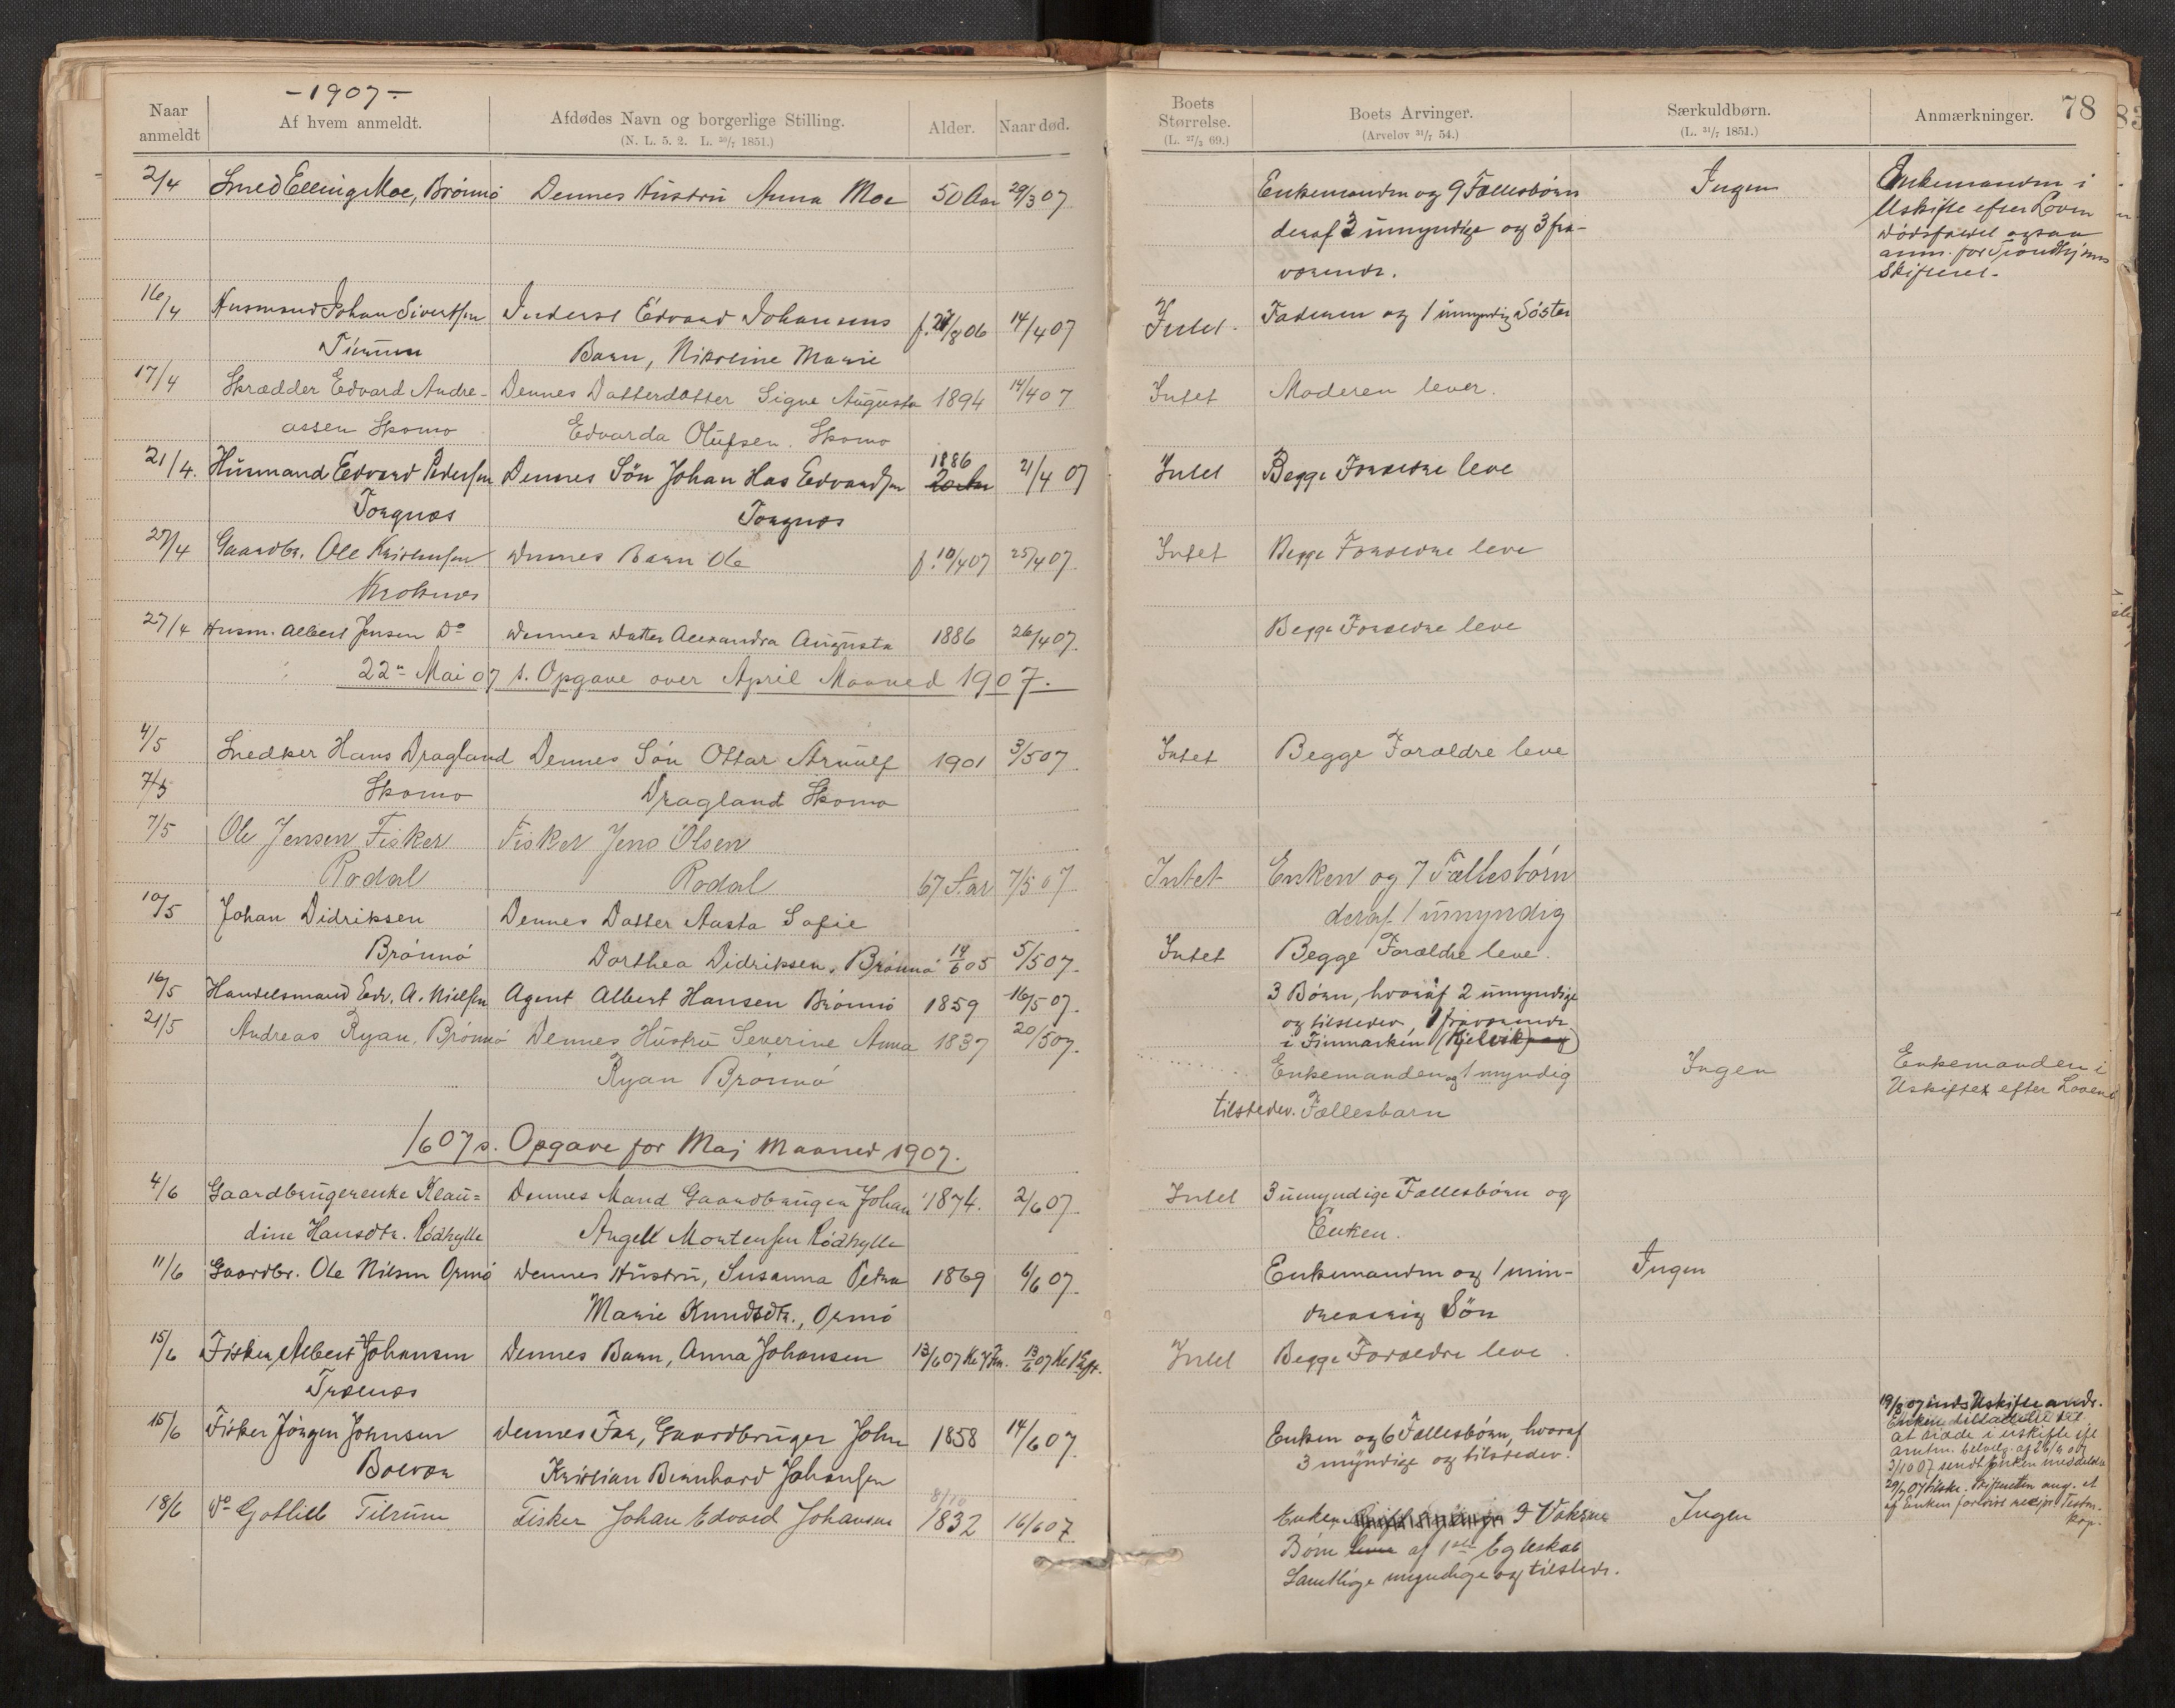 -1907-
Naar anmeldt
Af hvem anmeldt.
Afdødes Navn og borgerlige Stilling.
(N. L. 5. 2. L. 30/7 1851.)
Alder.
Naar død.
2/4 Smed Elling Moe, Brønnø Dennes Hustru Anna Moe 50 Aar 29/3 07
16/4 Husmand Johan Sivertsen Inderst Edvard Johansens f. 27/8 06 14/4 07
Tilrum Barn, Nikoline Marie
17/4 Skrædder Edvard Andre- Dennes Datterdatter Signe Augusta 1894 14/4 07
assen Skomo Edvarda Olufsen. Skomo
1886
21/4. Husmand Edvard Pedersen Dennes Søn Johan Has Edvardsen 20 Aar 21/4 07
Torgnes Torgnes
27/4 Gaardbr. Ole Kristensen Dennes Barn Ole f. 10/4 07 25/4 07.
Kroknes
27/4 Husm. Albert Jensen Do Dennes Datter Alexandra Augusta 1886 26/4 07.
22n Mai 07 s. Opgave over April Maaned 1907.
4/5 Snedker Hans Dragland Dennes Søn Ottar Arnulf 1901 3/5 07
7/5 Skomo Dragland Skomo
7/5 Ole Jensen Fisker Fisker Jens Olsen
Rodal Rodal 67 Aar 7/5 07
10/5 Johan Didriksen Dennes Datter Aasta Sofie
Brønnø Dorthea Didriksen, Brønnø 14/6 05 5/5 07.
16/5 Handelsmand Edv. A. Nielsen Agent Albert Hansen Brønnø 1859 16/5 07.
21/5 Andreas Ryan, Brønnø Dennes Hustru Severine Anna 1837 20/5 07.
Ryan Brønnø
1/6 07 s. Opgave for Maj Maaned 1907.
4/6 Gaardbrugerenke Klau= Dennes Mand Gaardbruger Johan 1874. 2/6 07.
dine Hansdtr. Rødhylle Angell Mortensen Rødhylle
11/6 Gaardbr. Ole Nilsen Ormø Dennes Hustru, Susanna Petra 1869 6/6 07.
Marie Knudsdtr., Ormø
15/6 Fisker, Albert Johansen Dennes Barn, Anna Johansen 13/6 07 Kl 7 Fm. 13/6 07 Kl 1 Eft.
Trælnes
15/6 Fisker Jörgen Johnsen Dennes Far, Gaardbruger John 1858 14/6 07.
Bolvær Kristian Bernhard Johansen
8/10
18/6 Do Gotlieb Tilrum Fisker Johan Edvard Johansen 1832 16/6 07
78
Boets Størrelse.
(L. 27/3 69.)
Boets Arvinger.
(Arvelov 31/7 54.)
Særkuldbørn.
(L. 31/7 1851.)
Anmærkninger.
Enkemanden og 9 Fællesbørn Ingen Enkemanden i
deraf 3 umyndige og 3 fra- Uskifte efter Loven
værende. Dødsfaldet ogsaa
anm. for Trondhjems
Skifteret.
Intet. Faderen og 1 umyndig Søster
Intet Moderen lever.
Intet Begge Forældre leve
Intet Begge Forældre leve
Begge Forældre leve
Intet Begge Forældre leve
Intet Enken og 7 Fællesbørn
deraf 1 umyndig
Intet Begge Forældre leve.
3 Børn, hvoraf 2 umyndige
og tilstedev., 1 fraværende
i Finmarken (Kjelvik) og)
Enkemanden og 1 myndig Ingen Enkemanden i
tilstedev. Fællesbarn Uskiftet efter Loven
Intet 3 umyndige Fællesbørn og
Enken.
Enkemanden og 1 min- Ingen
dreaarig Søn
Intet Begge Forældre leve.
Enken og 6 Fællesbørn, hvoraf
3 myndige og tilstedev.
19/8 07 inds Uskifteandr.
Enken
at sidde i uskifte ifl
amtm. bevilg. af 26/9 07
3/10 07 sendt Enken meddelelse
af Enken
kop.
Enken 9 Voksne Ingen
Børn leve af 1ste Egteskab
Samtlige myndige og tilstedev.